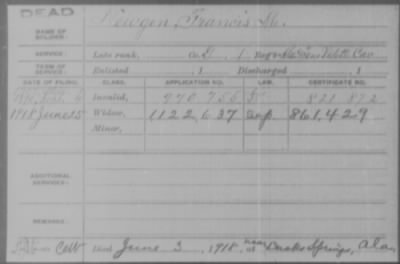 DEAD
Francis M.
NAME OF SOLDIER:
SERVICE: Late rank, Co. D, 1 Reg't Vidette Cav
TERM OF SERVICE: Enlisted 1 Discharged 1
DATE OF FILING. CLASS. APPLICATION NO. LAW. CERTIFICATE NO.
Invalid, 970.756 821.872
1918 June 25 Widow, 1122.637 861.429
Minor,
ADDITIONAL SERVICES:
REMARKS:
Died June 3, 1918, near Ducks Springs, Ala.